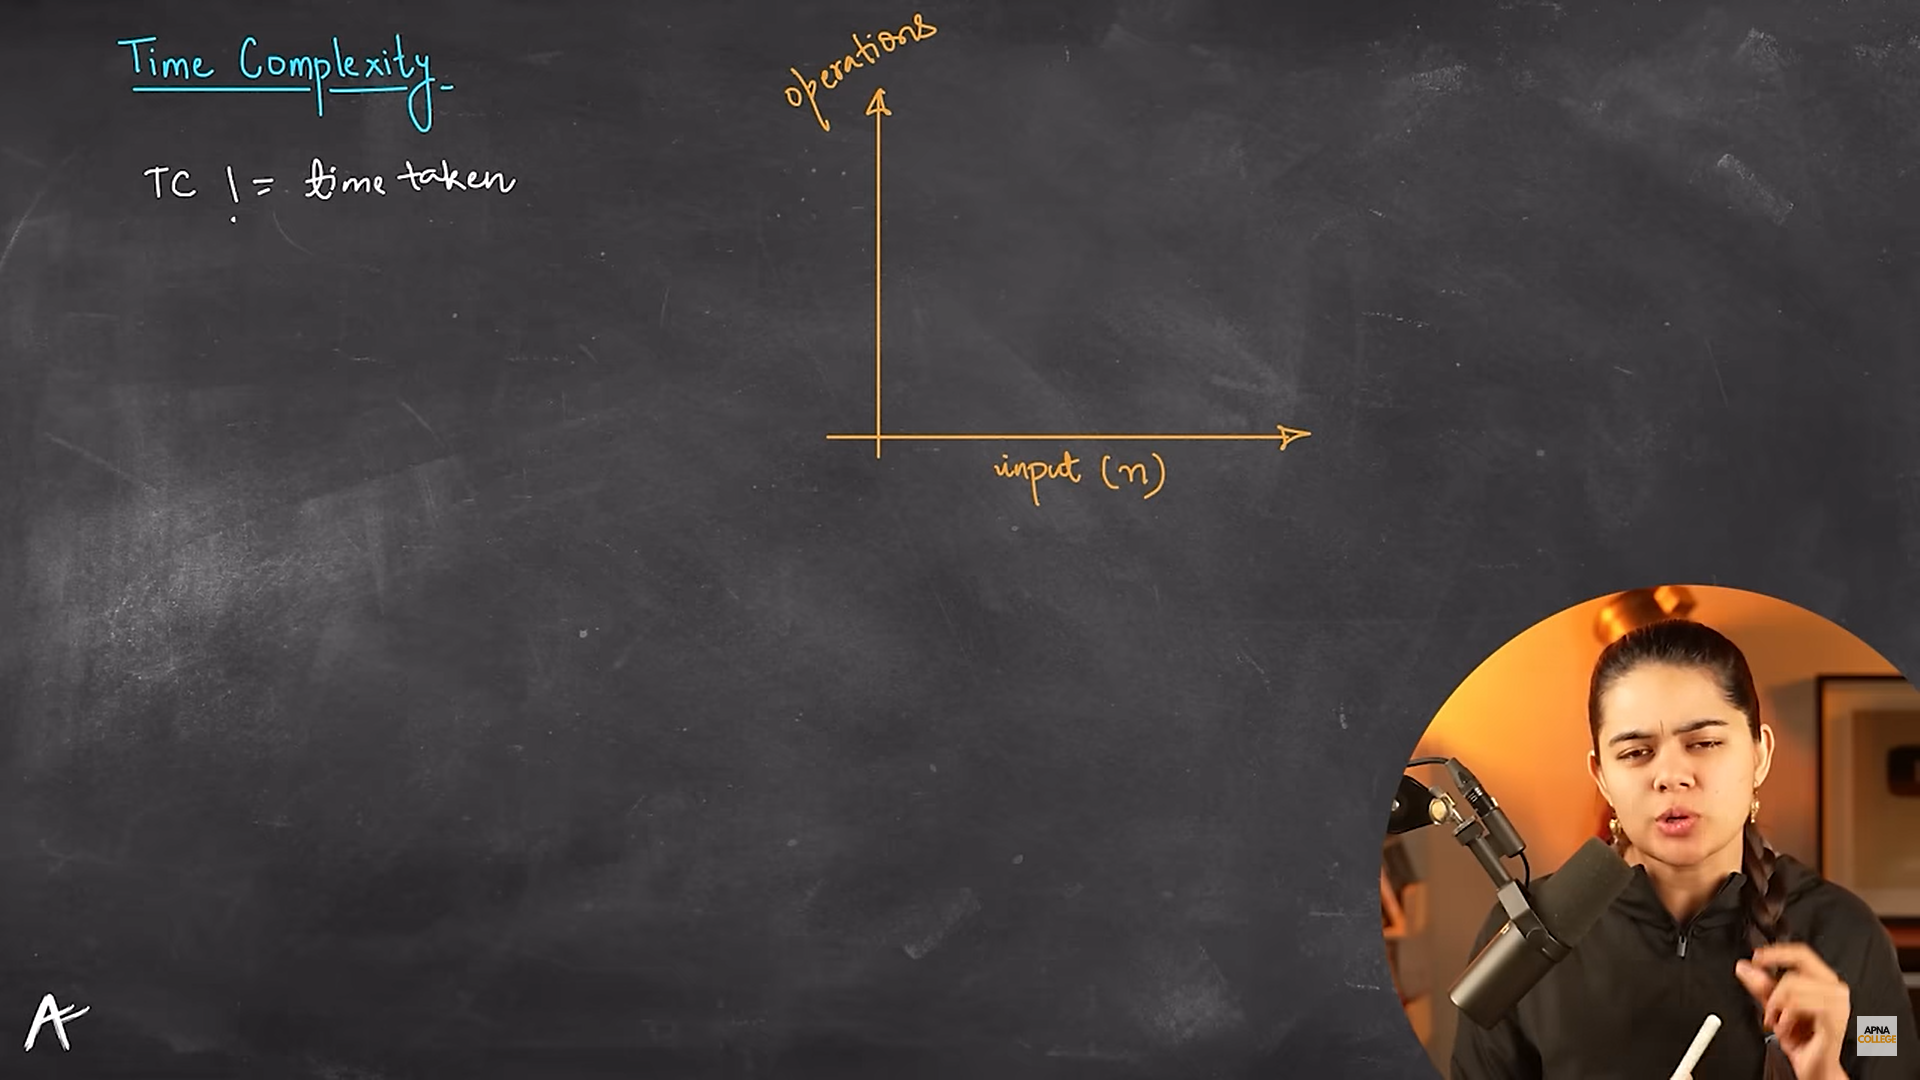 Time Complexity
TC != time taken
operations
input (n)
APNA
COLLEGE